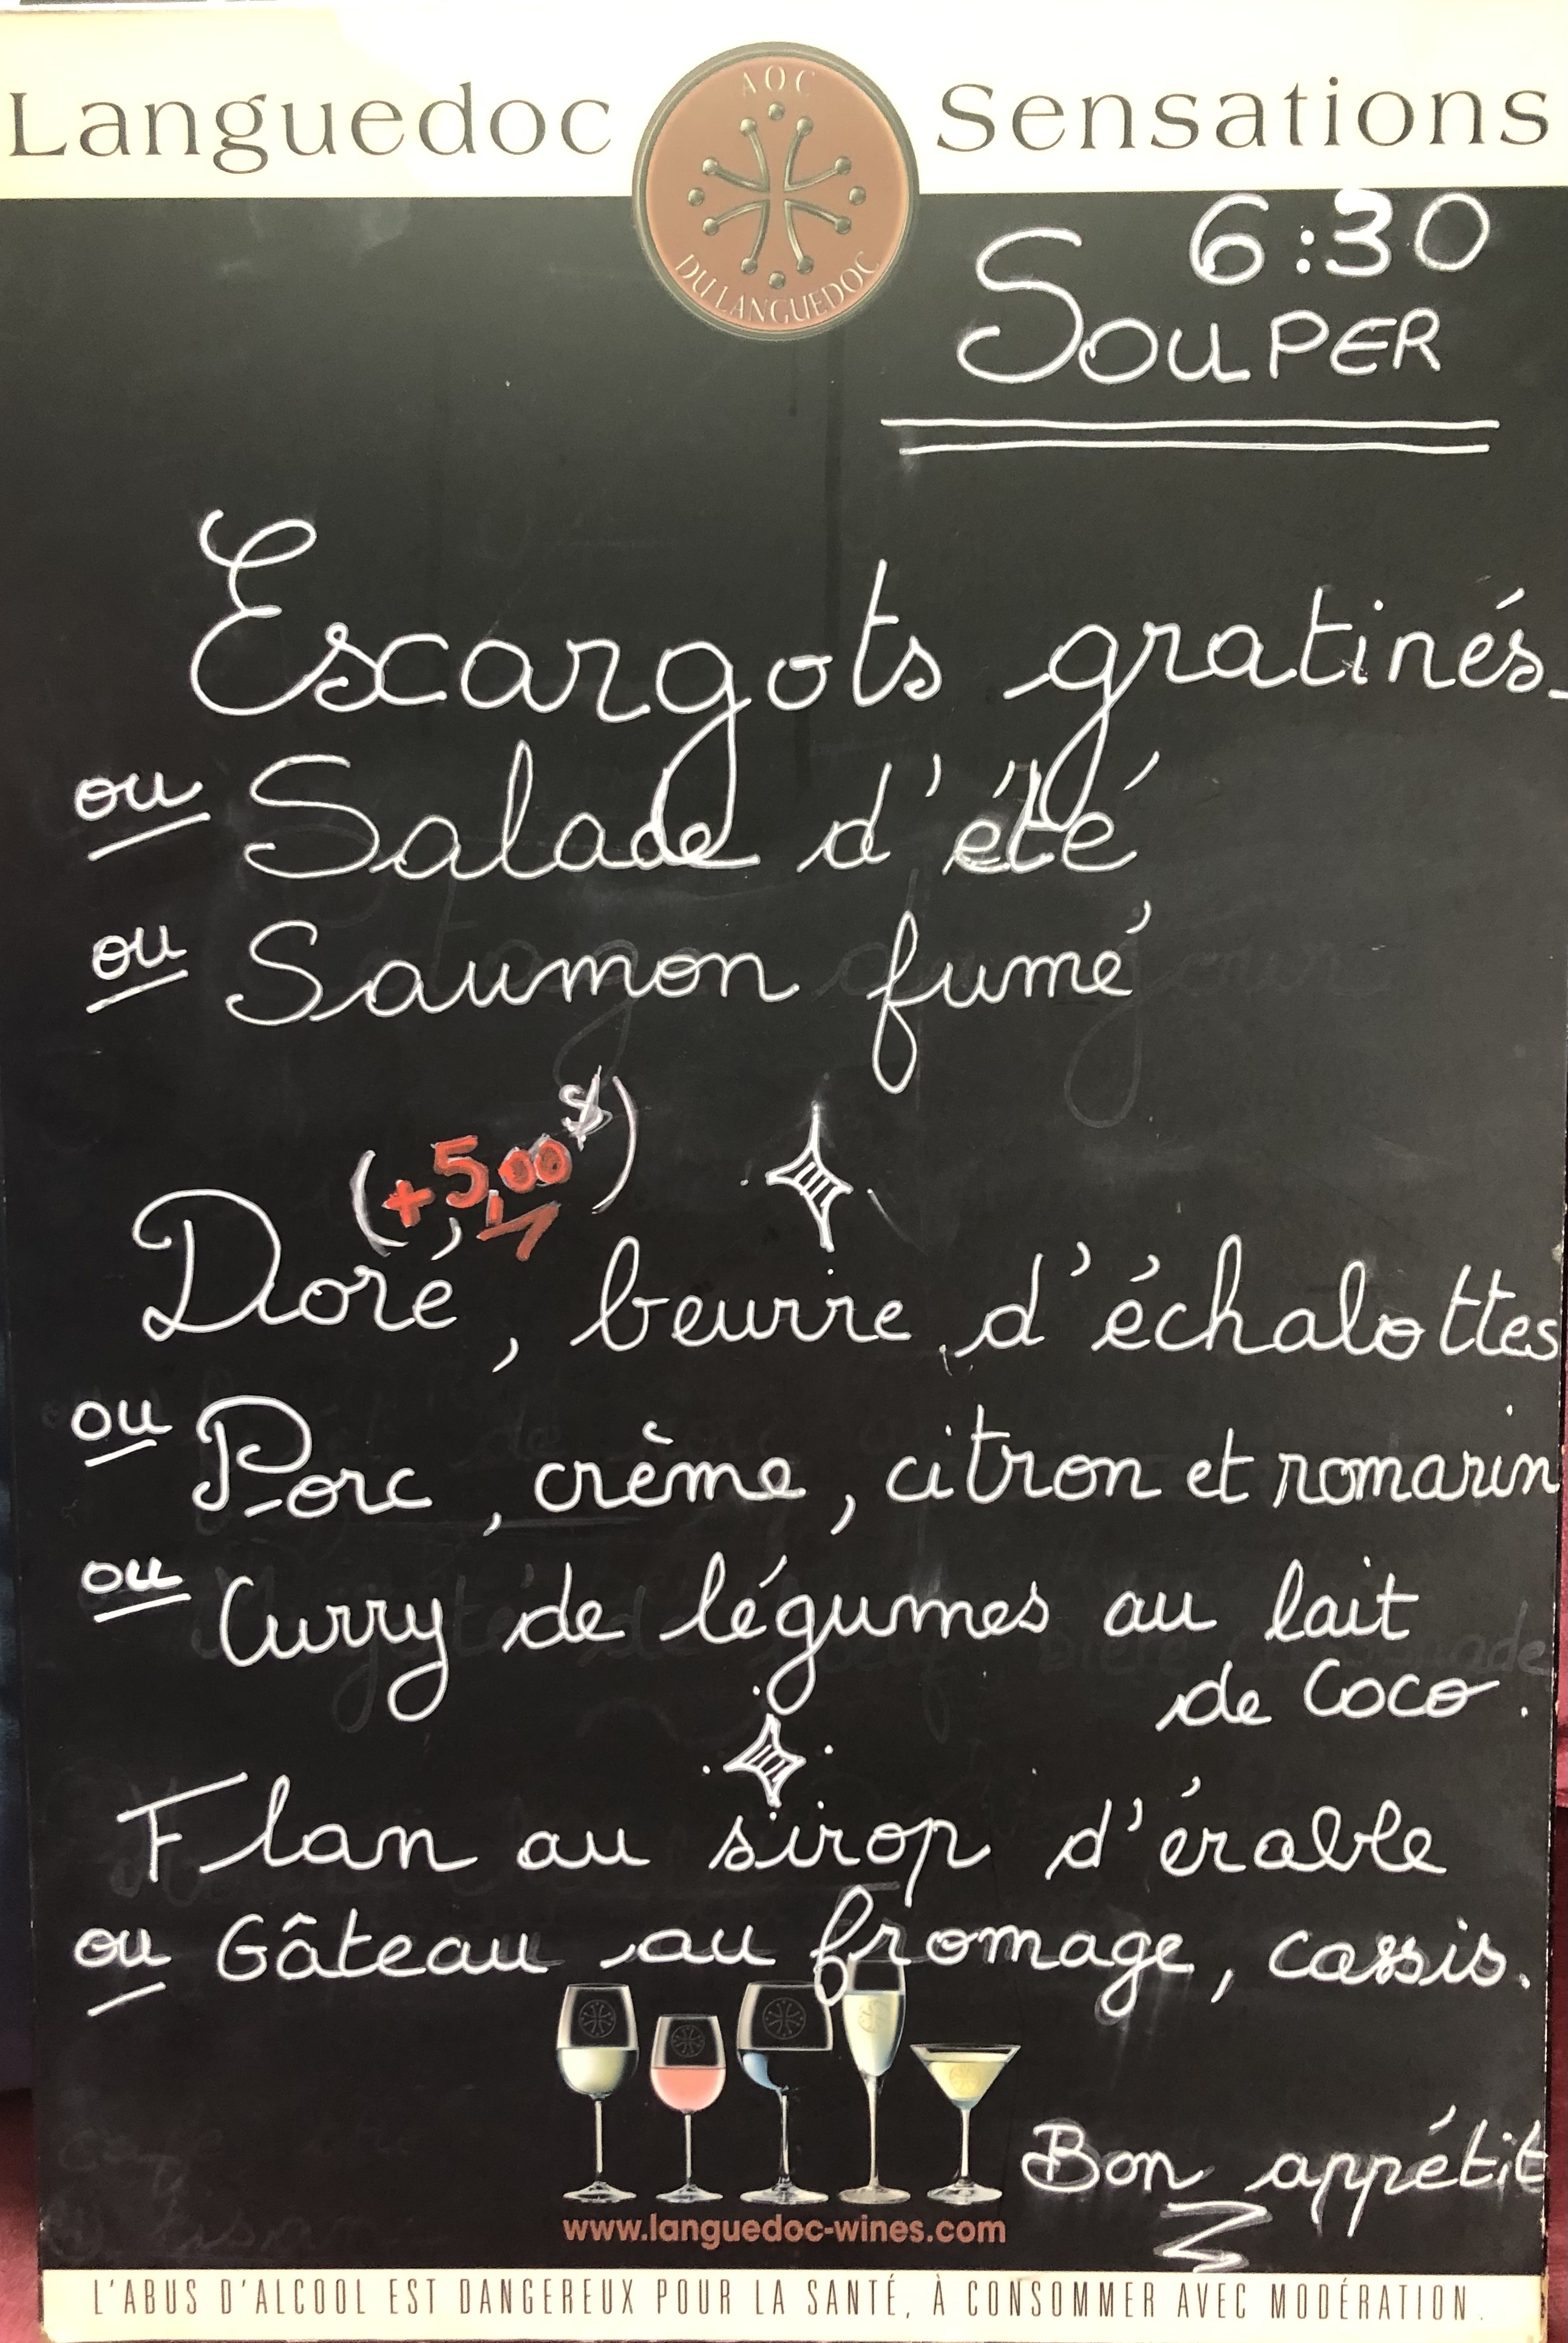 Languedoc Sensations
AOC
DU LANGUEDOC
6:30
SOUPER
Escargots gratinés
ou Salade d'été
ou Saumon fumé
(+5,00$)
Doré, beurre d'échalottes
ou Porc, crème, citron et romarin
ou Curry de légumes au lait
de Coco.
Flan au sirop d'érable
ou Gâteau au fromage, cassis.
Bon appétit
www.languedoc-wines.com
L'ABUS D'ALCOOL EST DANGEREUX POUR LA SANTÉ, À CONSOMMER AVEC MODÉRATION.